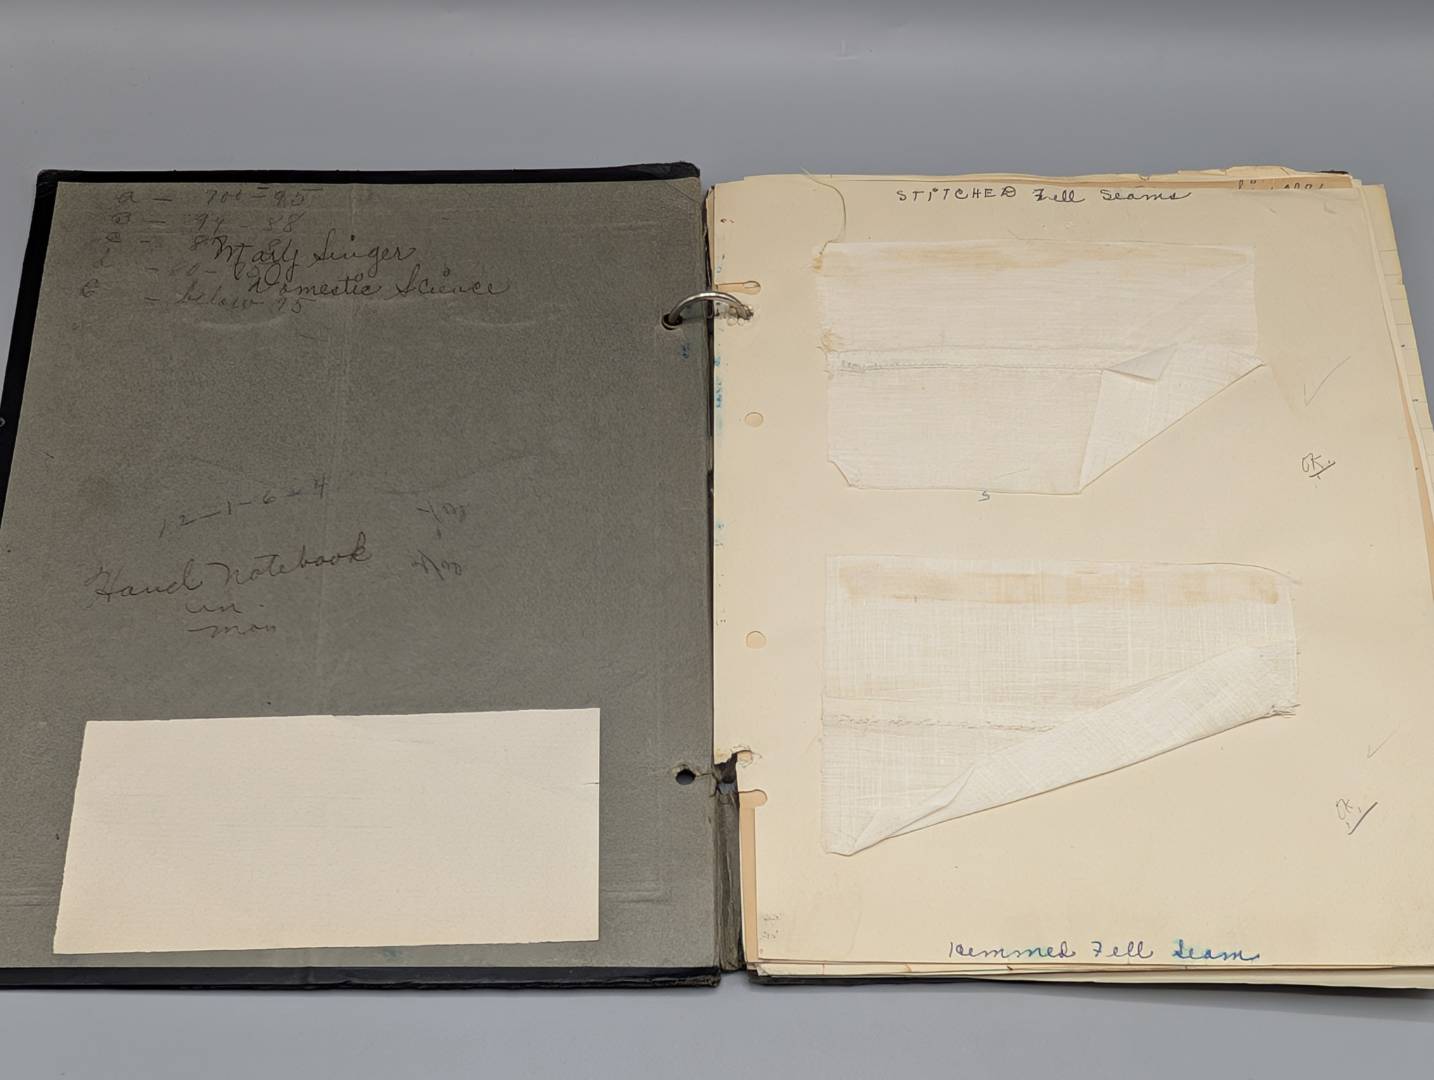 a — 100 - 95
B — 94 - 88
Marly Singer
Domestic Science
E — below 75
12-1-6-4
Hand Notebook
in
mon
STITCHED Fell Seams
OK.
S
OK.
Hemmed Fell Seam